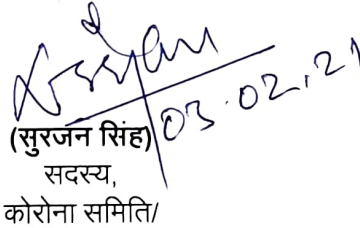 03.02.21
(सुरजन सिंह)
सदस्य,
कोरोना समिति/